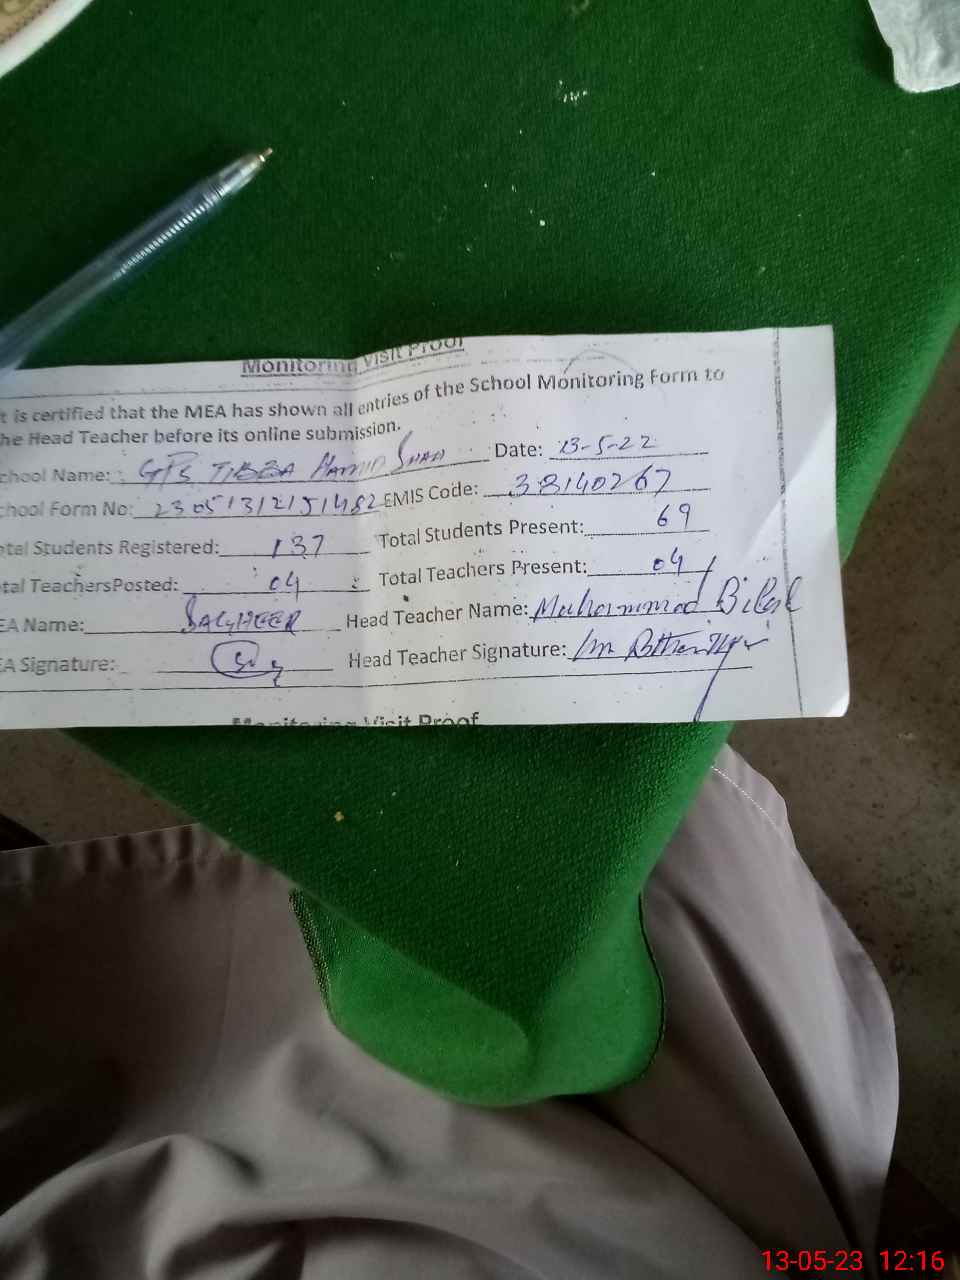 Monitoring Visit Proof
t is certified that the MEA has shown all entries of the School Monitoring Form to
he Head Teacher before its online submission.
chool Name: GPS TIBBA HAMID SHAH Date: 13-5-22
chool Form No: 23051312151482 EMIS Code: 38140267
otal Students Registered: 137 Total Students Present: 69
otal TeachersPosted: 04 Total Teachers Present: 04
EA Name: SAGHEER Head Teacher Name: Muhammad Bilal
EA Signature: Head Teacher Signature:
Monitoring Visit Proof
13-05-23 12:16